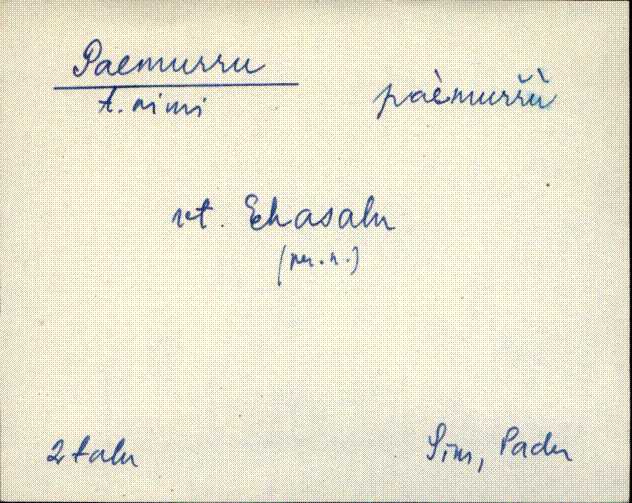 Paemurru
t. nimi
paèmurr̆ù
vt. Ehasalu
(per. n.)
2 talu
Sim, Padu